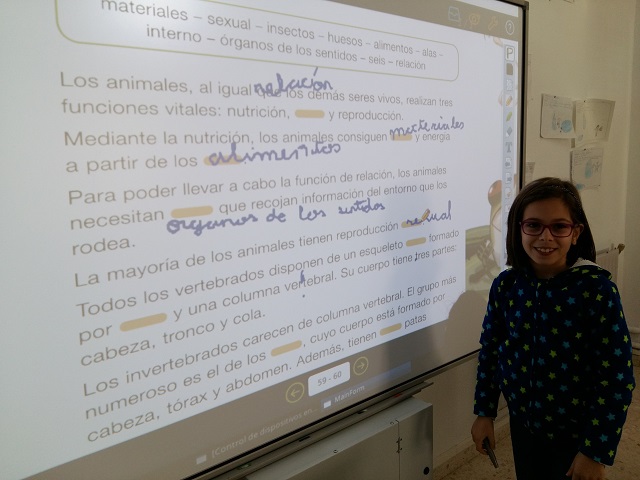 materiales – sexual – insectos – huesos – alimentos – alas –
interno – órganos de los sentidos – seis – relación
relación
Los animales, al igual que los demás seres vivos, realizan tres
funciones vitales: nutrición, y reproducción.
materiales
Mediante la nutrición, los animales consiguen y energía
a partir de los alimentos
Para poder llevar a cabo la función de relación, los animales
necesitan que recojan información del entorno que los
rodea. organos de los sntidos
La mayoría de los animales tienen reproducción sexual
Todos los vertebrados disponen de un esqueleto formado
por y una columna vertebral. Su cuerpo tiene tres partes:
cabeza, tronco y cola.
Los invertebrados carecen de columna vertebral. El grupo más
numeroso es el de los , cuyo cuerpo está formado por
cabeza, tórax y abdomen. Además, tienen patas
59 - 60
iControl de dispositivos en...
MainForm